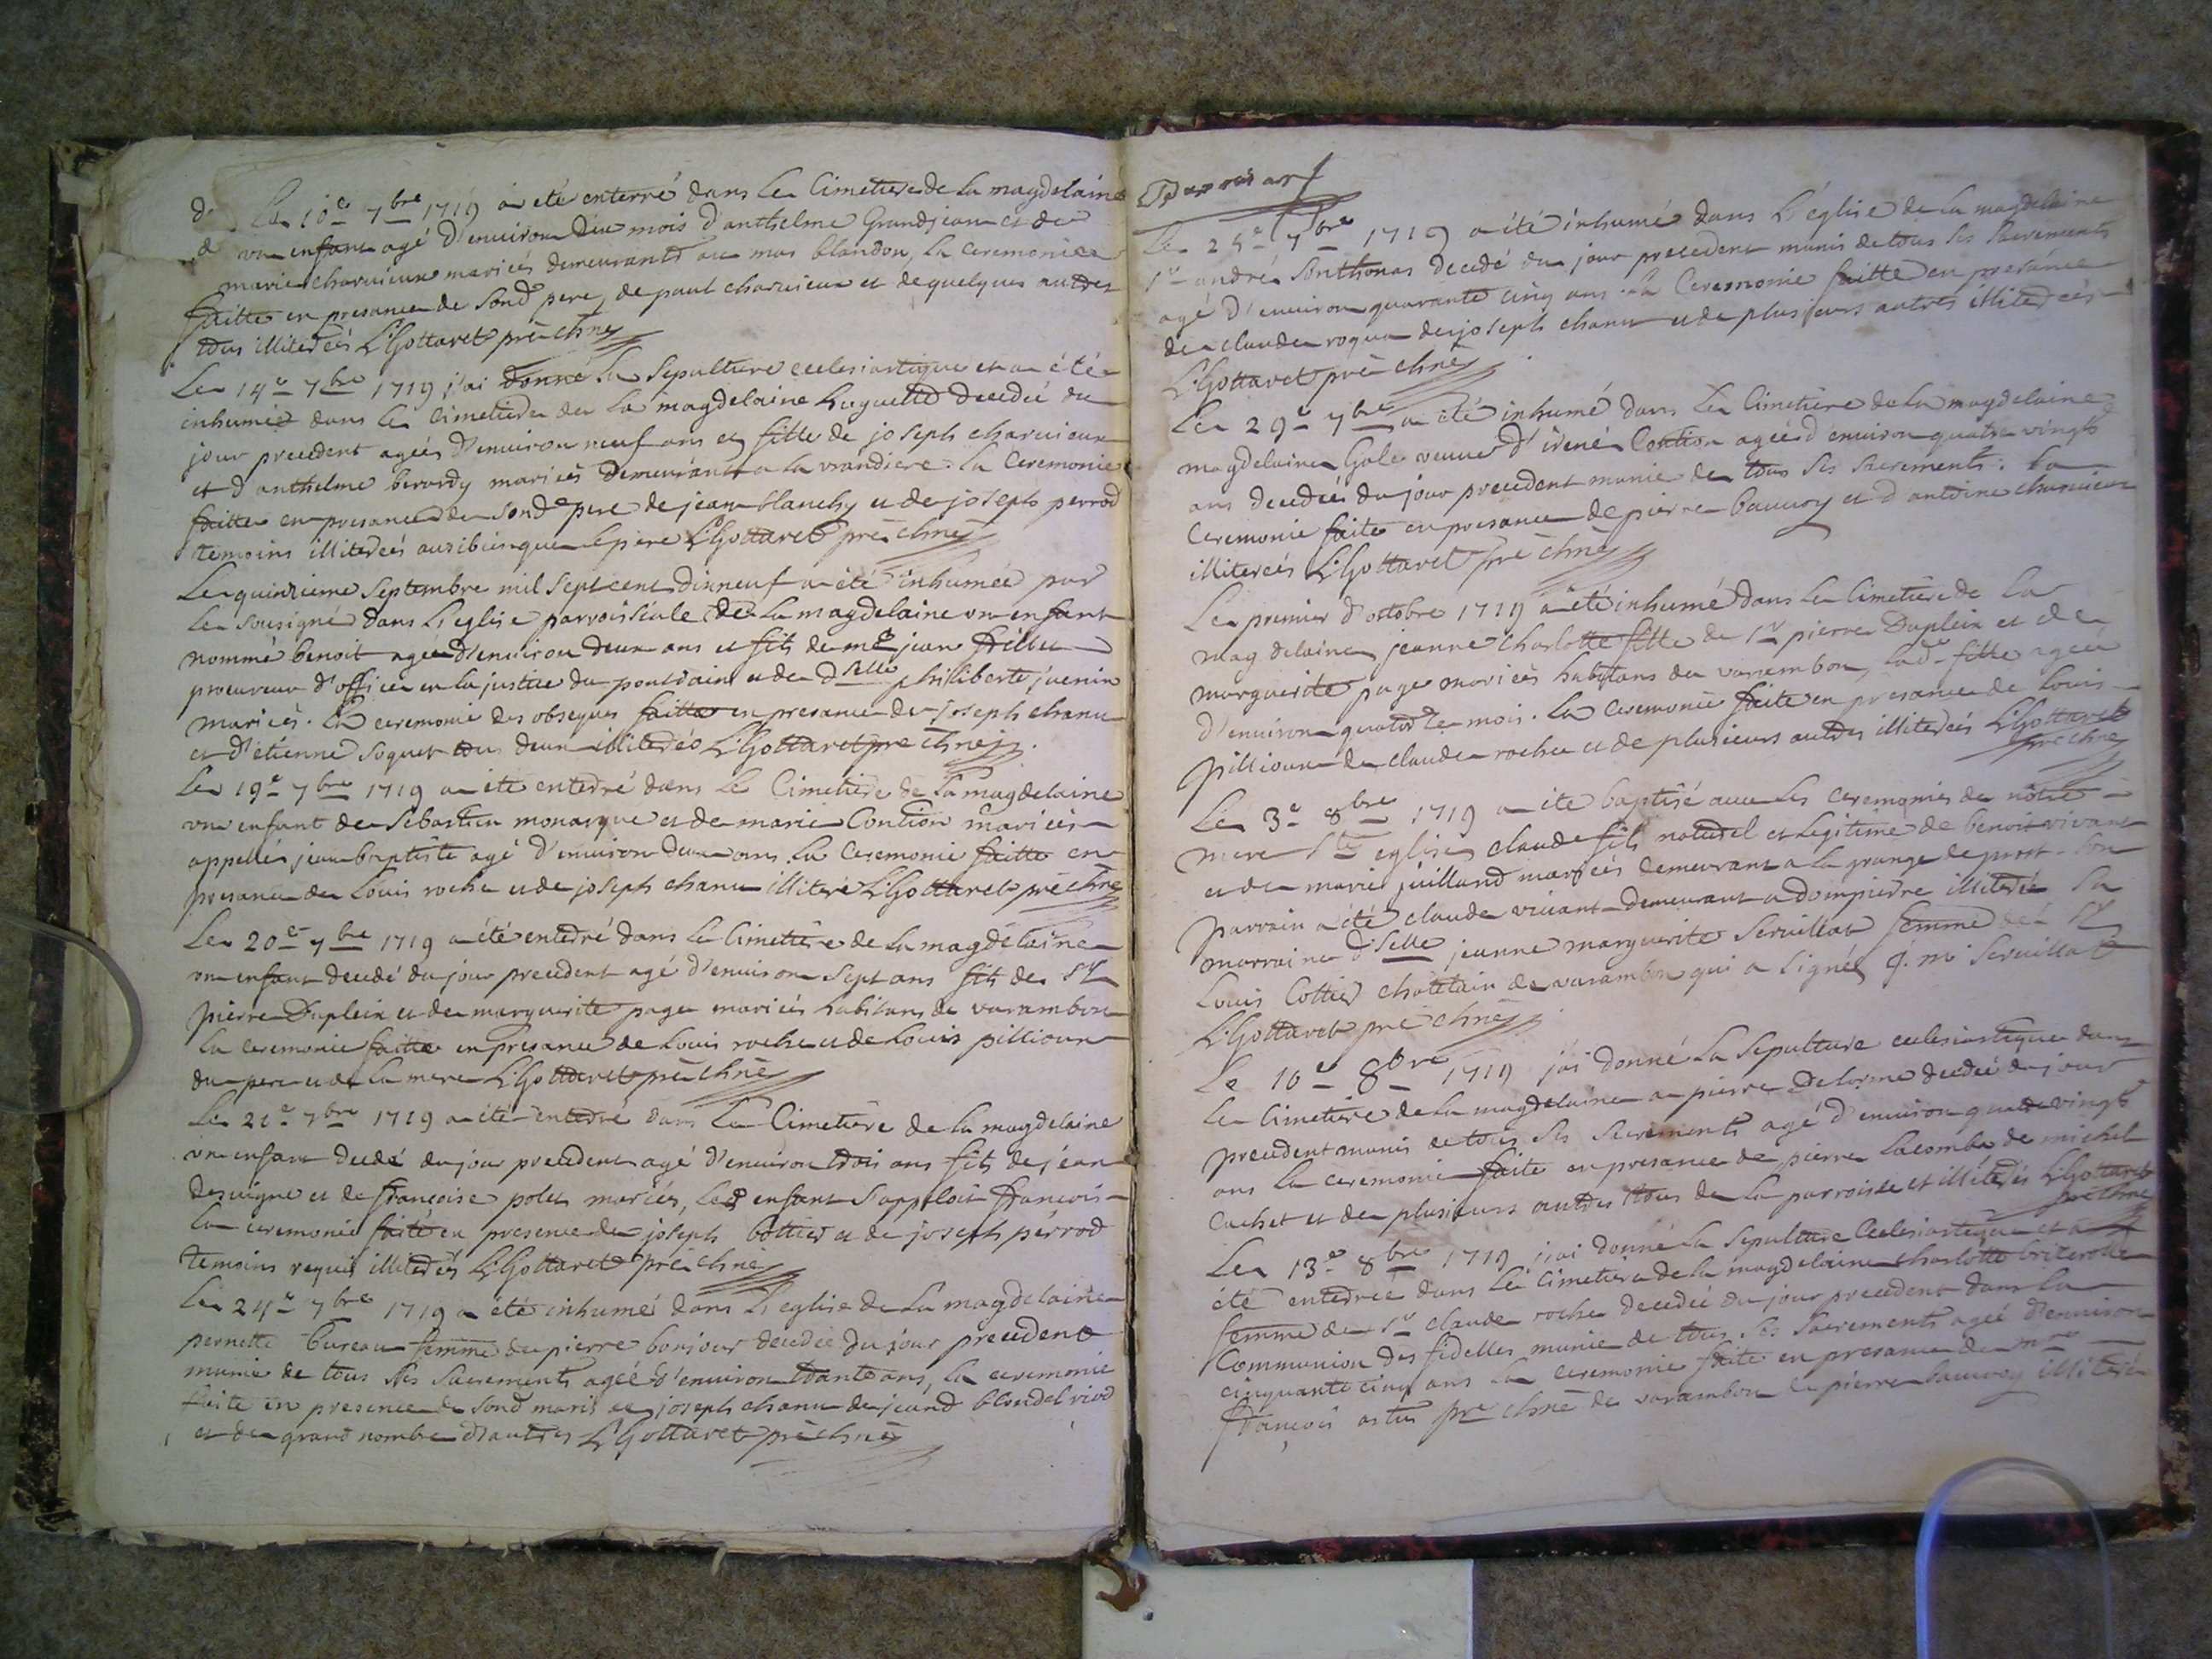 Le 10e 7bre 1719 a eté enterré dans le Cimetiere de la magdelaine
un enfant agé d'environ dix mois d'anthelme Grandjean et de
marie charvieux mariés demeurants au mas blandon, la ceremonie
faitte en presance de sond pere, de paul charvieux et de quelques autres
tous illiterés L'Gottaret prê chne
Le 14e 7bre 1719 j'ai donné la sepulture eclesiastique et a été
inhumée dans le cimetiere de la magdelaine huguette decedée du
jour precedent agée d'environ neuf ans et fille de joseph charvieux
et d'anthelme berardy mariés demeurants a la verandiere. la ceremonie
faitte en presance de sond pere de jean blanchy et de joseph perrod
temoins illiterés aussibienque le pere L'Gottaret prê chne
Le quinzieme septembre mil sept cent dixneuf a été inhumée par
le sousigné dans l'eglise parroissiale de la magdelaine un enfant
nommé benoit agé d'environ deux ans et fils de me jean
procureur d'office en la justice du pontdain et de dselle philiberte juenin
mariés. la ceremonie des obseques faitte en presance de joseph chanu
et d'etienne soquet tous deux illiterés L'Gottaret pre chne
Le 19e 7bre 1719 a eté enterré dans le Cimetiere de la magdelaine
un enfant de sebastien monarque et de marie Contion mariés
appellé jean baptiste agé d'environ deux ans. la ceremonie faitte en
presance de Louis roche et de joseph chanu illiteré L'Gottaret prê chne
Le 20e 7bre 1719 a été enterré dans le Cimetiere de la magdelaine
un enfant decedé du jour precedent agé d'environ sept ans fils de sr
pierre Duplein et de marguerite page mariés habitans de varambon
la ceremonie faitte en presance de Louis roche et de Louis pillioux
du pere et de la mere L'Gottaret prê chne
Le 21e 7bre 1719 a été enterré dans Le Cimetiere de la magdelaine
un enfant decedé du jour precedent agé d'environ trois ans fils de jean
desvigne et de francoise polet mariés, led enfant s'appeloit francois
la ceremonie faite en presence de joseph cottier et de joseph perrod
temoins requis illiterés L'Gottaret prê chne
Le 24e 7bre 1719 a été inhumé dans L'eglise de la magdelaine
pernette bureau femme de pierre bonjour decedée du jour precedent
munie de tous ses sacrements agée d'environ trante ans, la ceremonie
faite en presence de sond maris de joseph chanu de jean blondel
et de grand nombre d'autres L'Gottaret prê chne
Le 25e 7bre 1719 a été inhumé dans L'église de la magdelaine
sr andré Sonthonas decedé du jour precedent munis de tous ses sacrements
agé d'environ quarante cinq ans. la Ceremonie faitte en presance
de claude roque de joseph chanu et de plusieurs autres illiterés
L'Gottaret prê chne
Le 29e 7bre a été inhumé dans Le Cimetiere de la magdelaine
magdelaine Gale veuve d'irené Contion agée d'environ quatre vingt
ans decedée du jour precedent munie de tous ses sacrements. la
ceremonie faite en presance de pierre bauvoy et d'antoine charvieux
illiterés L'Gottaret prê chne
Le premier d'octobre 1719 a été inhumé dans Le Cimetiere de La
magdelaine jeanne charlotte fille de sr pierre Duplein et de
marguerite page mariés habitans de varambon, lade fille agée
d'environ quatorze mois. la ceremonie faite en presance de Louis
pillioux de claude roche et de plusieurs autres illiterés L'Gottaret
prê chne
Le 3e 8bre 1719 a été baptisé avec les ceremonies de nôtre
mere ste eglise claude fils naturel et legitime de benoit vivant
et de marie juilland mariés demeurant a la grange de prost. son
parrain a été claude vivant demeurant a dompierre illiteré sa
marraine dselle jeanne marguerite servillat femme de sr
Louis Cottier chatelain de varambon qui a signé j. m servillat
L'Gottaret prê chne
Le 10e 8bre 1719 j'ai donné la sepulture eclesiastique dans
le Cimetiere de la magdelaine a pierre delorme decedé du jour
precedent munis de tous ses sacrements agé d'environ quatre vingt
ans la ceremonie faite en presance de pierre lacombe de michel
cachet et de plusieurs autres tous de la parroisse et illiterés L'Gottaret
prê chne
Le 13e 8bre 1719 j'ai donné la sepulture Eclesiastique et a
été enterrée dans le Cimetiere de la magdelaine charlotte
femme de sr claude roche decedée du jour precedent dans la
Communion des fidelles munie de tous ses sacrements agée d'environ
cinquante cinq ans la ceremonie faite en presance de mre
françois pre chne de varambon de pierre bauvoy illiteré